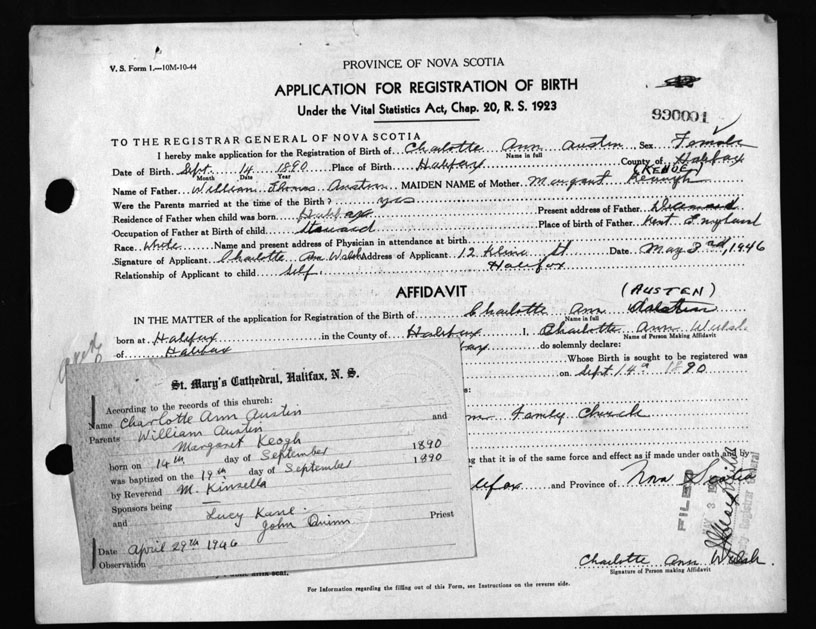 V. S. Form 1.—10M-10-44
PROVINCE OF NOVA SCOTIA
APPLICATION FOR REGISTRATION OF BIRTH
Under the Vital Statistics Act, Chap. 20, R. S. 1923
930001
TO THE REGISTRAR GENERAL OF NOVA SCOTIA
I hereby make application for the Registration of Birth of Charlotte Ann Austin, Sex Female
Name in full
Date of Birth Sept. 14 1890 Place of Birth Halifax County of Halifax
Month Date Year
(KEHUE)
Name of Father William Thomas Austin MAIDEN NAME of Mother Margaret Keough
Were the Parents married at the time of the Birth? yes
Residence of Father when child was born Halifax Present address of Father Deceased
Occupation of Father at Birth of child Steward Place of birth of Father Kent England
Race White Name and present address of Physician in attendance at birth
Signature of Applicant Charlotte Ann Walsh Address of Applicant 12 Kline St Date May 3rd, 1946
Relationship of Applicant to child self Halifax
AFFIDAVIT
(AUSTEN)
IN THE MATTER of the application for Registration of the Birth of Charlotte Ann
Name in full
born at Halifax in the County of Halifax I, Charlotte Ann Walsh
Name of Person Making Affidavit
of Halifax fax do solemnly declare:
Whose Birth is sought to be registered was
on Sept 14th 1890
s:
Family Church
ng that it is of the same force and effect as if made under oath and by
lifax and Province of Nova Scotia
FILED
Charlotte Ann Walsh.
Signature of Person making Affidavit
For Information regarding the filling out of this Form, see Instructions on the reverse side.
St. Mary's Cathedral, Halifax, N. S.
According to the records of this church:
Name Charlotte Ann Austin
Parents William Austin and
Margaret Keogh
born on 14th day of September 1890
was baptized on the 19th day of September 1890
by Reverend M. Kinsella
Sponsors being Lucy Kane
and John Quinn
Priest
Date April 29th 1946
Observation